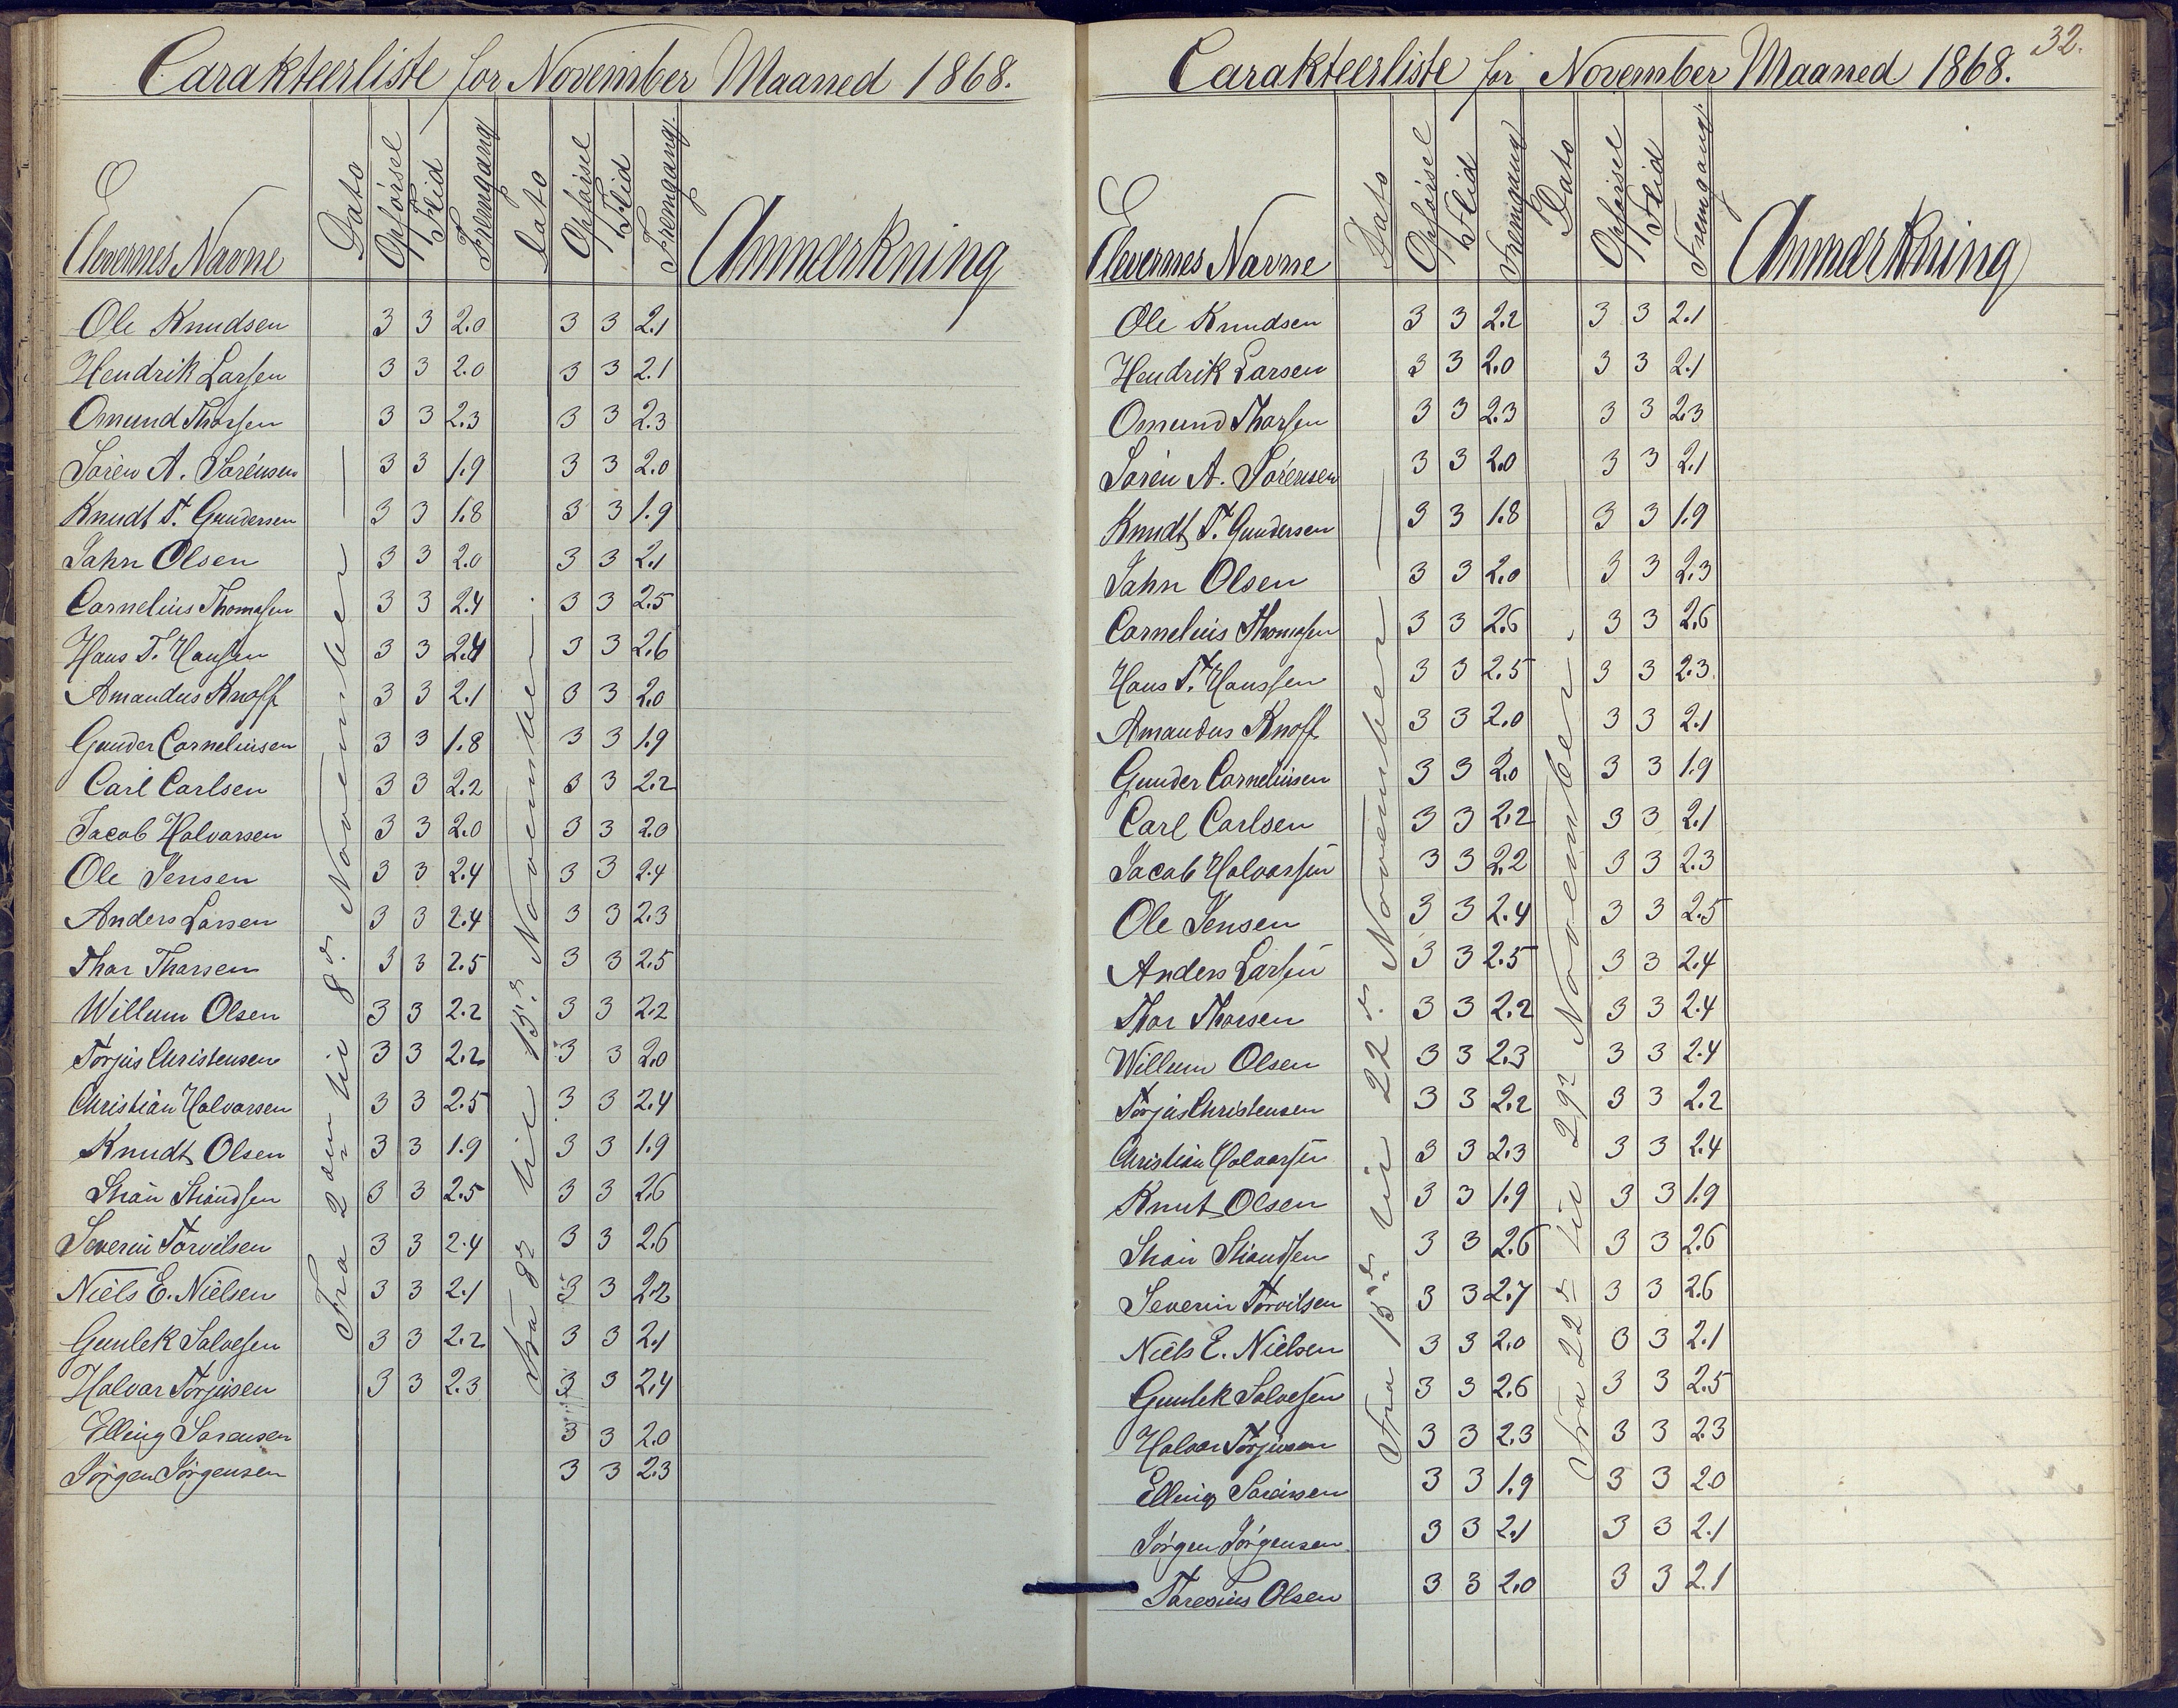 Carakteerliste for November Maaned 1868.
Elevernes Navne Dato Opførsel Flid Fremgang Dato Opførsel Flid Fremgang. Anmærkning
Fra 2den til 8de November
Fra 8de til 15de November.
Ole Knudsen 3 3 2.0 3 3 2.1
Hendrik Larsen 3 3 2.0 3 3 2.1
Omund Thorsen 3 3 2.3 3 3 2.3
Sørèn A. Sørénsen 3 3 1.9 3 3 2.0
Knudt T. Gundersen 3 3 1.8 3 3 1.9
Jahn Olsen 3 3 2.0 3 3 2.1
Cornelius Thomasen 3 3 2.4 3 3 2.5
Hans T. Hansen 3 3 2.4 3 3 2.6
Amandus Knoff 3 3 2.1 3 3 2.0
Gunder Corneliusen 3 3 1.8 3 3 1.9
Carl Carlsen 3 3 2.2 3 3 2.2
Jacob Halvorsen 3 3 2.0 3 3 2.0
Ole Jensen 3 3 2.4 3 3 2.4
Anders Larsen 3 3 2.4 3 3 2.3
Thor Thorsen 3 3 2.5 3 3 2.5
Willum Olsen 3 3 2.2 3 3 2.2
Torjus Christensen 3 3 2.2 3 3 2.0
Christian Halvorsen 3 3 2.5 3 3 2.4
Knudt Olsen 3 3 1.9 3 3 1.9
3 3 2.5 3 3 2.6
Severin Torvilsen 3 3 2.4 3 3 2.6
Niels E. Nielsen 3 3 2.1 3 3 2.2
Gunlek Salvesen 3 3 2.2 3 3 2.1
Halvor Torjusen 3 3 2.3 3 3 2.4
Elling Sørensen 3 3 2.0
Jørgen Jørgensen 3 3 2.3
32.
Carakteerliste for November Maaned 1868.
Elevernes Navne Dato Opførsel Flid Fremgang Dato Opførsel Flid Fremgang. Anmærkning
Fra 15de til 22de November
Fra 22de til 29de November.
Ole Knudsen 3 3 2.2 3 3 2.1
Hendrik Larsen 3 3 2.0 3 3 2.1
Omund Thorsen 3 3 2.3 3 3 2.3
Sørèn A. Sørensen 3 3 2.0 3 3 2.1
Knudt T. Gundersen 3 3 1.8 3 3 1.9
Jahn Olsen 3 3 2.0 3 3 2.3
Cornelius Thomasen 3 3 2.6 3 3 2.6
Hans T. Hanssen 3 3 2.5 3 3 2.3
Amandus Knoff 3 3 2.0 3 3 2.1
Gunder Corneliusen 3 3 2.0 3 3 1.9
Carl Carlsen 3 3 2.2 3 3 2.1
Jacob Halvorsen 3 3 2.2 3 3 2.3
Ole Jensen 3 3 2.4 3 3 2.5
Anders Larsen 3 3 2.5 3 3 2.4
Thor Thorsen 3 3 2.2 3 3 2.4
Willum Olsen 3 3 2.3 3 3 2.4
Torjus Christensen 3 3 2.2 3 3 2.2
Christian Halvorsen 3 3 2.3 3 3 2.4
Knut Olsen 3 3 1.9 3 3 1.9
3 3 2.6 3 3 2.6
Severin Torvilsen 3 3 2.7 3 3 2.6
Niels E. Nielsen 3 3 2.0 3 3 2.1
Gunlek Salvesen 3 3 2.6 3 3 2.5
Halvor Torjusen 3 3 2.3 3 3 2.3
Elling Sørensen 3 3 1.9 3 3 2.0
Jørgen Jørgensen 3 3 2.1 3 3 2.1
Olsen 3 3 2.0 3 3 2.1